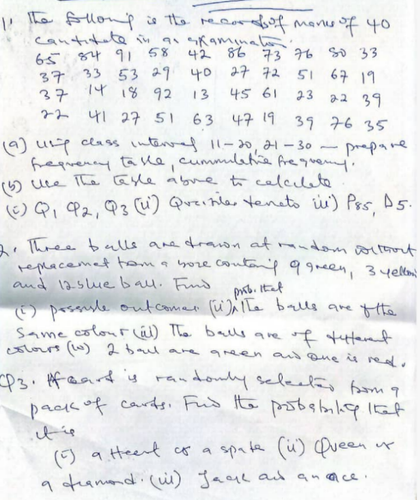 1. The following is the record of marks of 40
candidate in an examination.
65 84 91 58 42 86 73 76 80 33
37 33 53 29 40 27 72 51 67 19
37 14 18 92 13 45 61 23 22 39
22 41 27 51 63 47 19 39 76 35
(a) using class interval 11-20, 21-30 — prepare
frequency table, cummulative frequency.
(b) use the table above to calculate
(i) Q1, Q2, Q3 (ii) iii) P85, D5.
2. Three balls are drawn at random without
replacement from a box containing 9 green, 3 yellow
and 12 blue ball. Find
prob. that
(i) possible outcomes (ii) The balls are of the
same colour (iii) The balls are of different
colours (iv) 2 ball are green and one is red.
Q3. A card is randomly selected from a
pack of cards. Find the probability that
it is
(i) a Heart or a spade (ii) Queen or
a diamond. (iii) Jack and an ace.